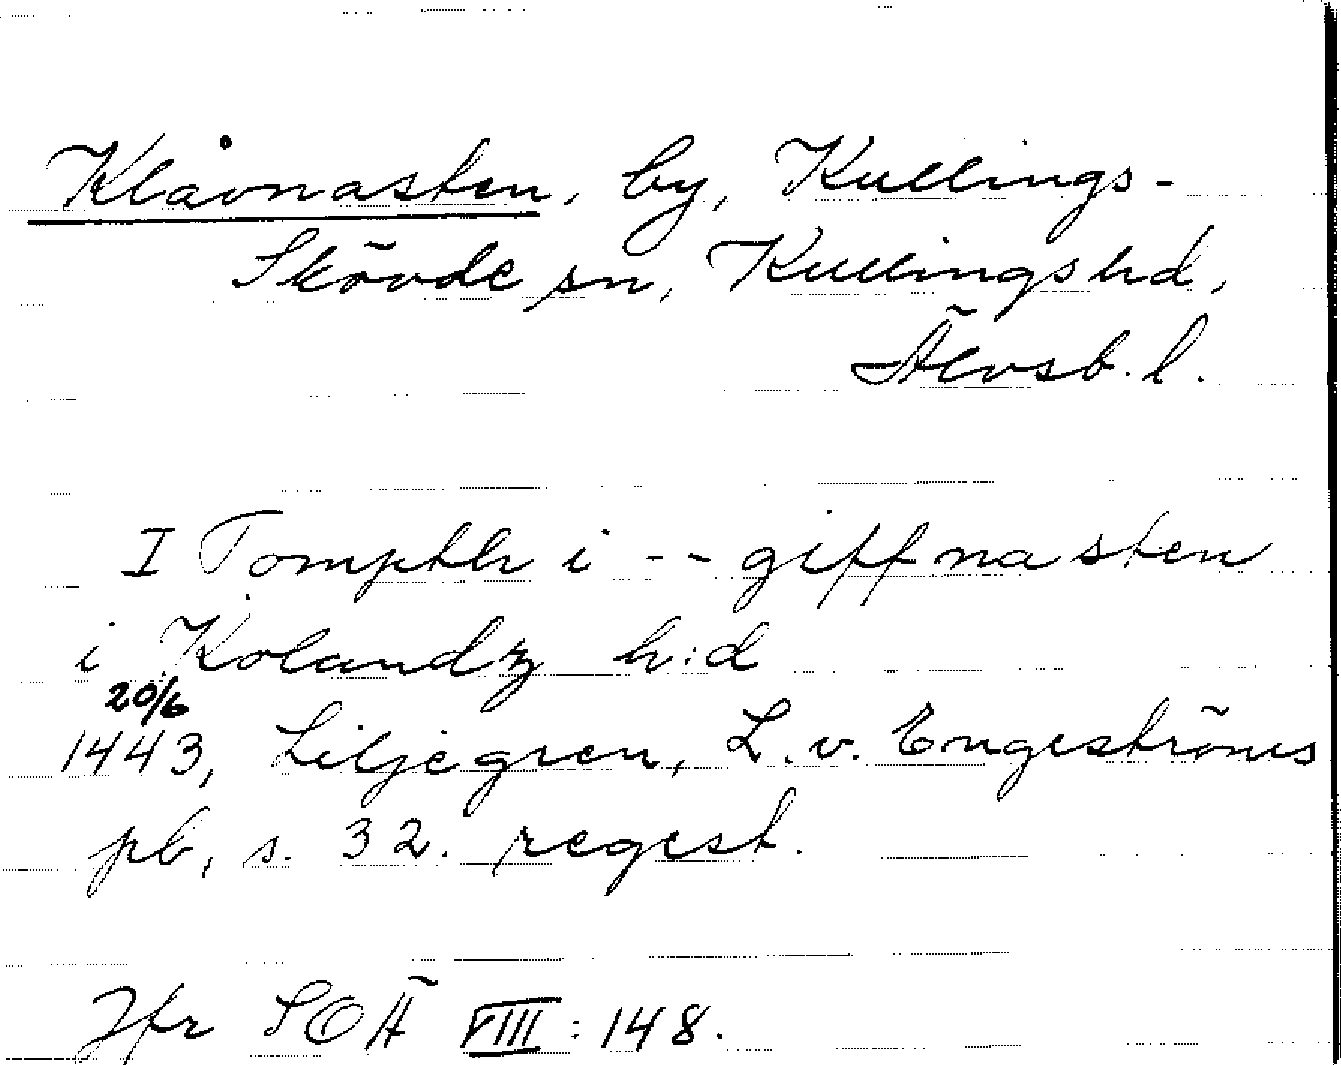 Klåvnasten, by, Kullings-
Skövde sn, Kullings hd,
Älvsb. l.
I Tompth i -- giffnasten
i Kolandz h:d
20/6
1443, Liljegren, L. v. Engeströms
pb, s. 32. regest.
Jfr SOÄ VIII: 148.